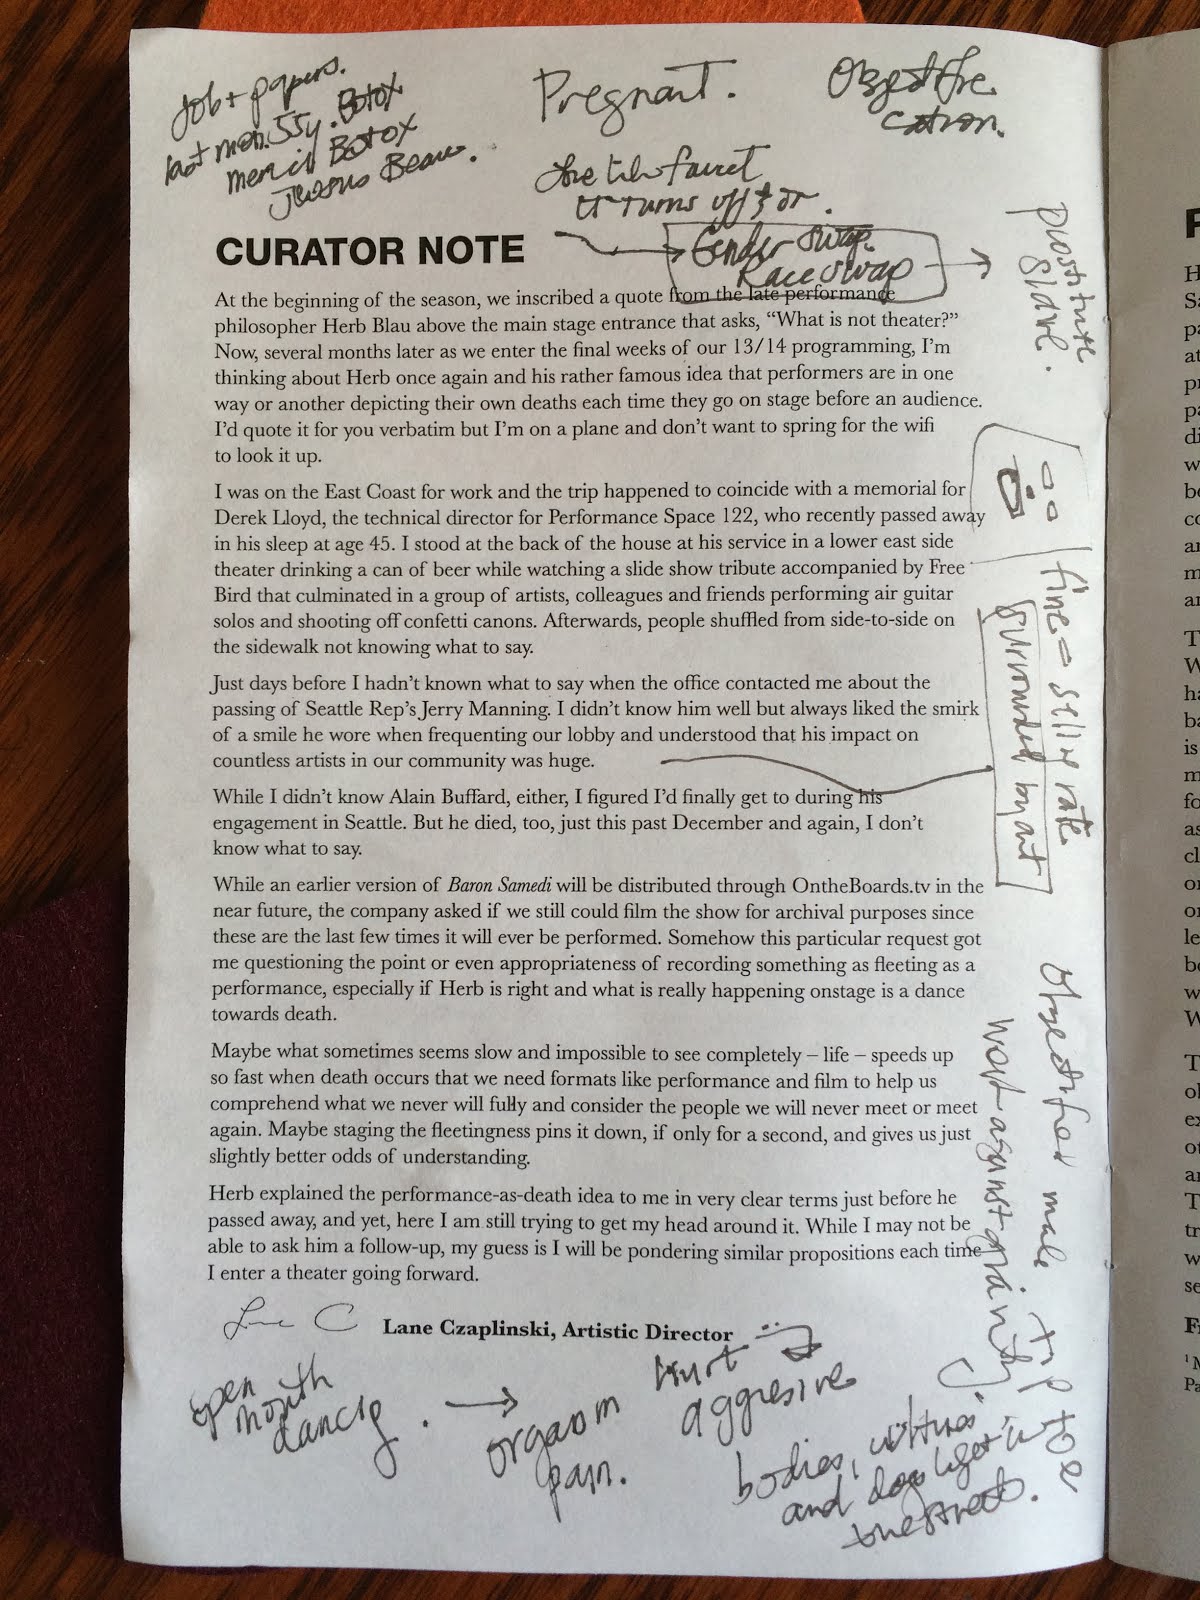 Job + papers.
Botox.
men in Botox
Pregnant.
Objectifi
cation.
faucet
turns off & on.
Gender swap.
Race swap
prostitute
slave.
CURATOR NOTE
At the beginning of the season, we inscribed a quote from the late performance
philosopher Herb Blau above the main stage entrance that asks, “What is not theater?”
Now, several months later as we enter the final weeks of our 13/14 programming, I’m
thinking about Herb once again and his rather famous idea that performers are in one
way or another depicting their own deaths each time they go on stage before an audience.
I’d quote it for you verbatim but I’m on a plane and don’t want to spring for the wifi
to look it up.
I was on the East Coast for work and the trip happened to coincide with a memorial for
Derek Lloyd, the technical director for Performance Space 122, who recently passed away
in his sleep at age 45. I stood at the back of the house at his service in a lower east side
theater drinking a can of beer while watching a slide show tribute accompanied by Free
Bird that culminated in a group of artists, colleagues and friends performing air guitar
solos and shooting off confetti canons. Afterwards, people shuffled from side-to-side on
the sidewalk not knowing what to say.
Just days before I hadn’t known what to say when the office contacted me about the
passing of Seattle Rep’s Jerry Manning. I didn’t know him well but always liked the smirk
of a smile he wore when frequenting our lobby and understood that his impact on
countless artists in our community was huge.
While I didn’t know Alain Buffard, either, I figured I’d finally get to during his
engagement in Seattle. But he died, too, just this past December and again, I don’t
know what to say.
While an earlier version of Baron Samedi will be distributed through OntheBoards.tv in the
near future, the company asked if we still could film the show for archival purposes since
these are the last few times it will ever be performed. Somehow this particular request got
me questioning the point or even appropriateness of recording something as fleeting as a
performance, especially if Herb is right and what is really happening onstage is a dance
towards death.
Maybe what sometimes seems slow and impossible to see completely – life – speeds up
so fast when death occurs that we need formats like performance and film to help us
comprehend what we never will fully and consider the people we will never meet or meet
again. Maybe staging the fleetingness pins it down, if only for a second, and gives us just
slightly better odds of understanding.
Herb explained the performance-as-death idea to me in very clear terms just before he
passed away, and yet, here I am still trying to get my head around it. While I may not be
able to ask him a follow-up, my guess is I will be pondering similar propositions each time
I enter a theater going forward.
Lane C
Lane Czaplinski, Artistic Director
surrounded by art
objectified male tip toe
work against gravity.
open
mouth
dancing.
orgasm
pain.
Hurt
aggresive
bodies,
and dogs
the streets.